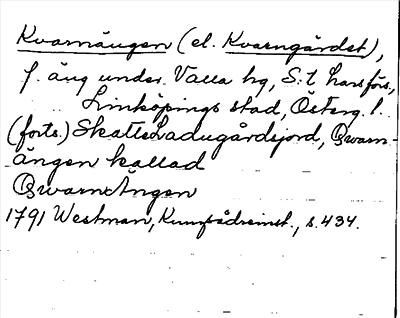 Kvarnängen (el. Kvarngärdet),
f. äng under Valla hg, S:t Larsförs.,
Linköpings stad, Österg. l.
(forts.) Skatte Ladugårdsjord, Qwarn-
ängen kallad
Qwarn Ängen
1791 Westman, s. 434.